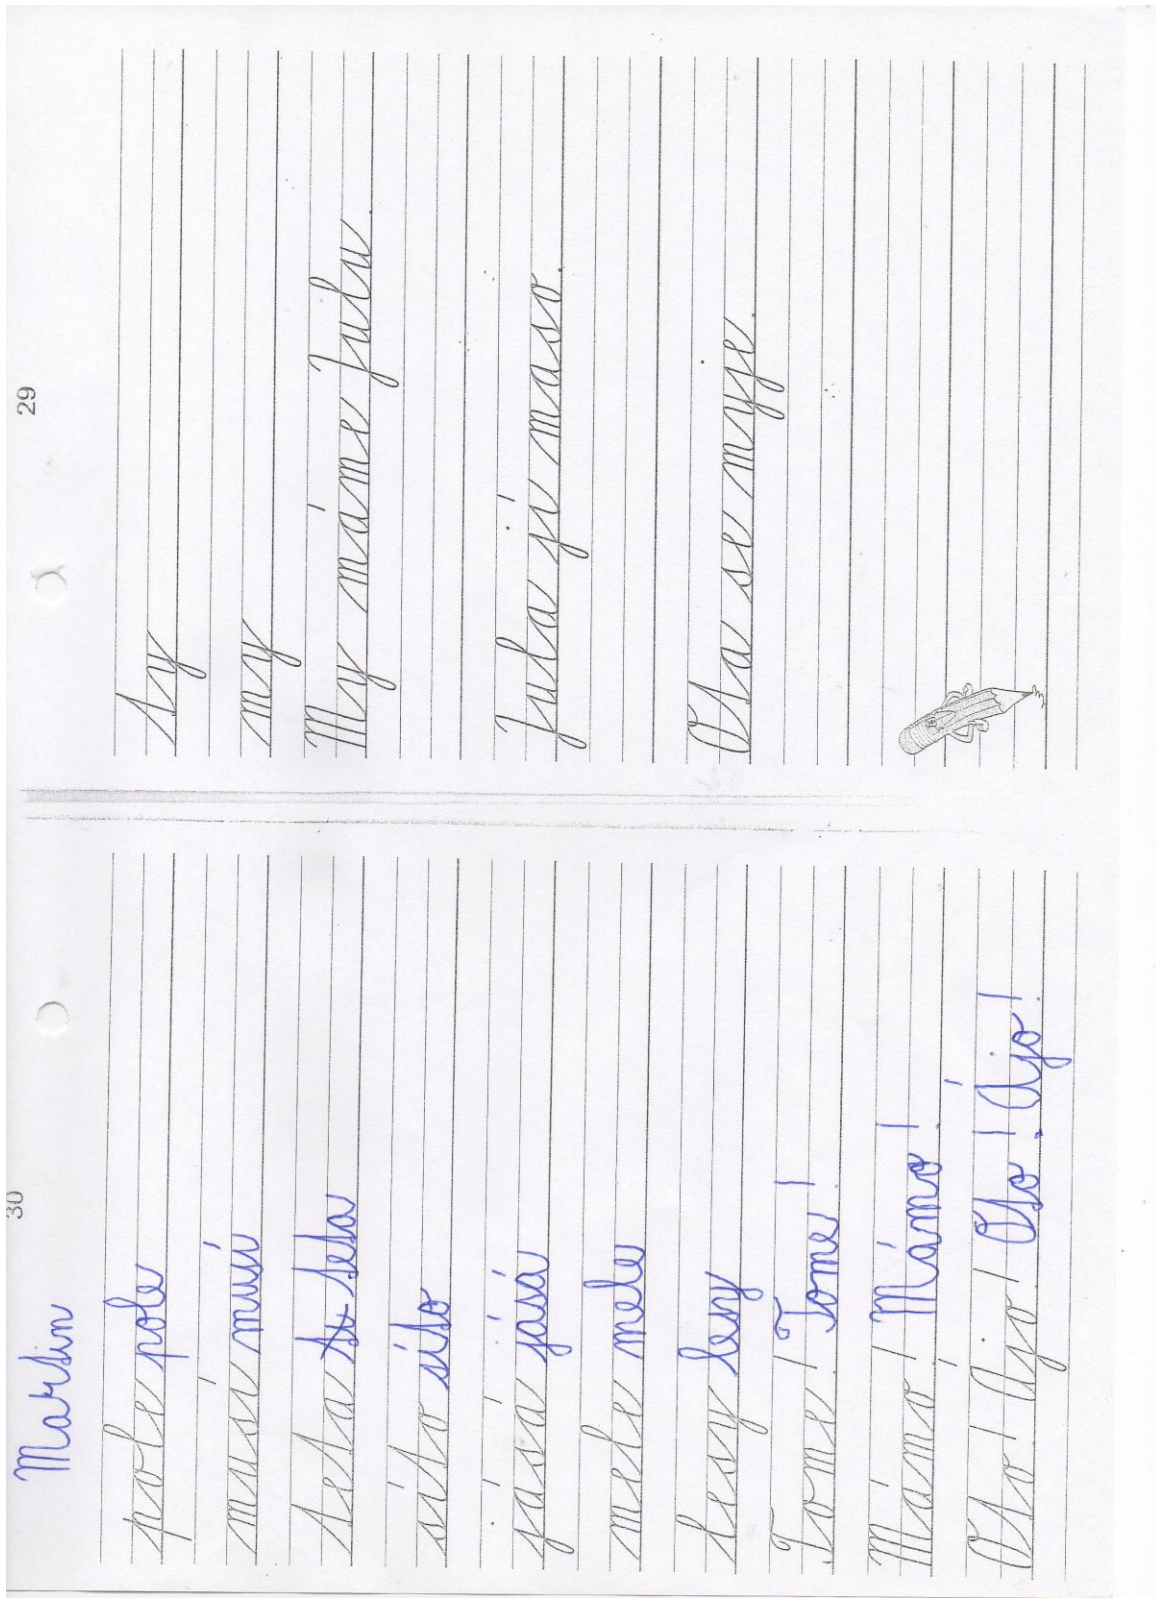 30
Martin
pole pole
musí musí
teta te teta
síto síto
jásá jásá
mele mele
lesy lesy
Tome! Tome!
Mámo! Mámo!
Oto! Ájo! Oto! Ájo!
29
ty
my
My máme Julu.
Jula jí maso.
Ota se myje.